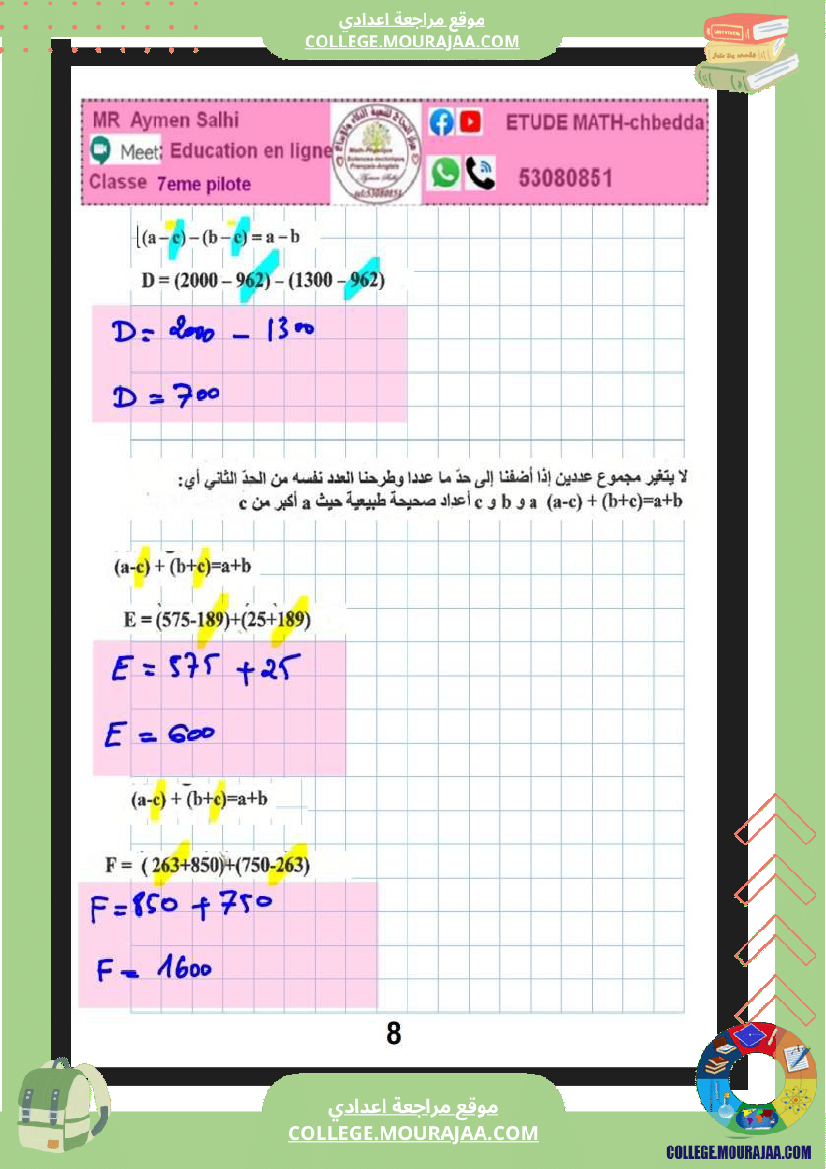 موقع مراجعة اعدادي
COLLEGE.MOURAJAA.COM
MR Aymen Salhi
Meet: Education en ligne
Classe 7eme pilote
ETUDE MATH-chbedda
53080851
(a – c) – (b – c) = a – b
D = (2000 – 962) – (1300 – 962)
D = 2000 – 1300
D = 700
لا يتغير مجموع عددين إذا أضفنا إلى حدّ ما عددا وطرحنا العدد نفسه من الحدّ الثاني أي:
(a-c) + (b+c)=a+b a و b و c أعداد صحيحة طبيعية حيث a أكبر من c
(a-c) + (b+c)=a+b
E = (575-189)+(25+189)
E = 575 + 25
E = 600
(a-c) + (b+c)=a+b
F = ( 263+850)+(750-263)
F = 850 + 750
F = 1600
8
موقع مراجعة اعدادي
COLLEGE.MOURAJAA.COM
COLLEGE.MOURAJAA.COM